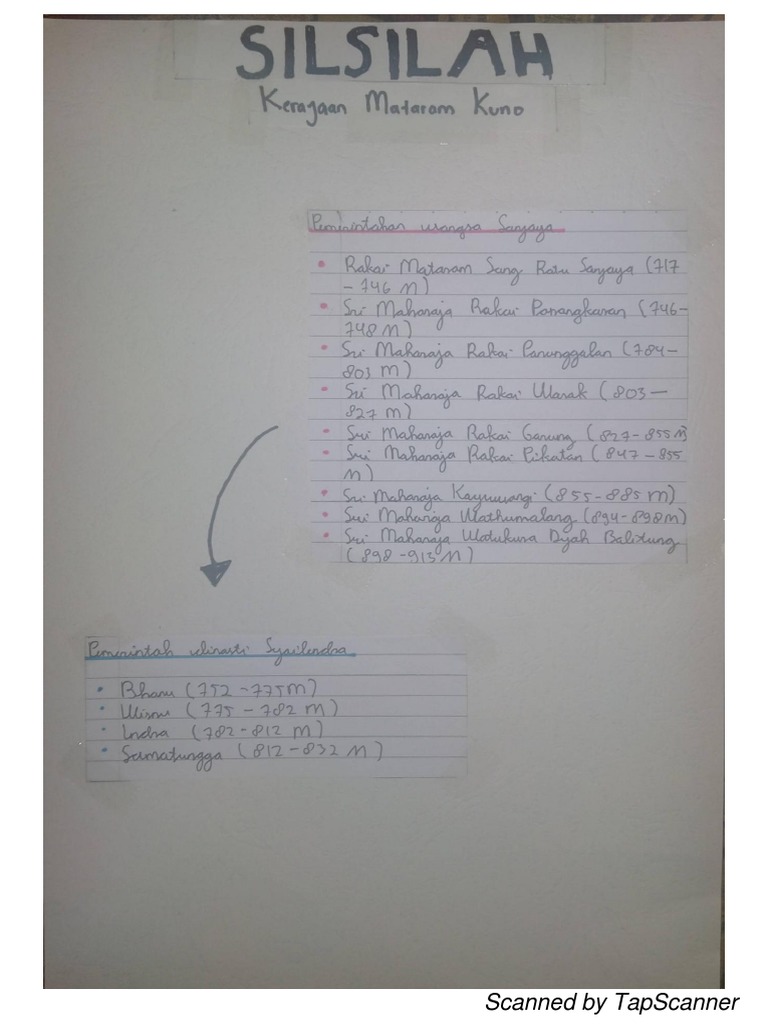 SILSILAH
Kerajaan Mataram Kuno
Pemerintahan wangsa Sanjaya
• Rakai Mataram Sang Ratu Sanjaya (717
– 746 M)
• Sri Maharaja Rakai Panangkaran (746–
748 M)
• Sri Maharaja Rakai Panunggalan (784–
803 M)
• Sri Maharaja Rakai Warak (803–
827 M)
• Sri Maharaja Rakai Garung (827–855 M
• Sri Maharaja Rakai Pikatan (847–855
M)
• Sri Maharaja Kayuwangi (855–885 M)
• Sri Maharaja Wathumalang (894–898 M)
• Sri Maharaja Watukura Dyah Balitung
(898–913 M)
Pemerintah dinasti Syailendra
• Bhanu (752–775 M)
• Wisnu (775–782 M)
• Indra (782–812 M)
• Samatungga (812–832 M)
Scanned by TapScanner